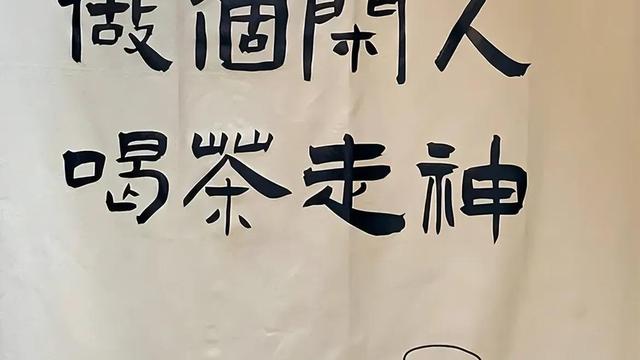 做個閑人
喝茶走神